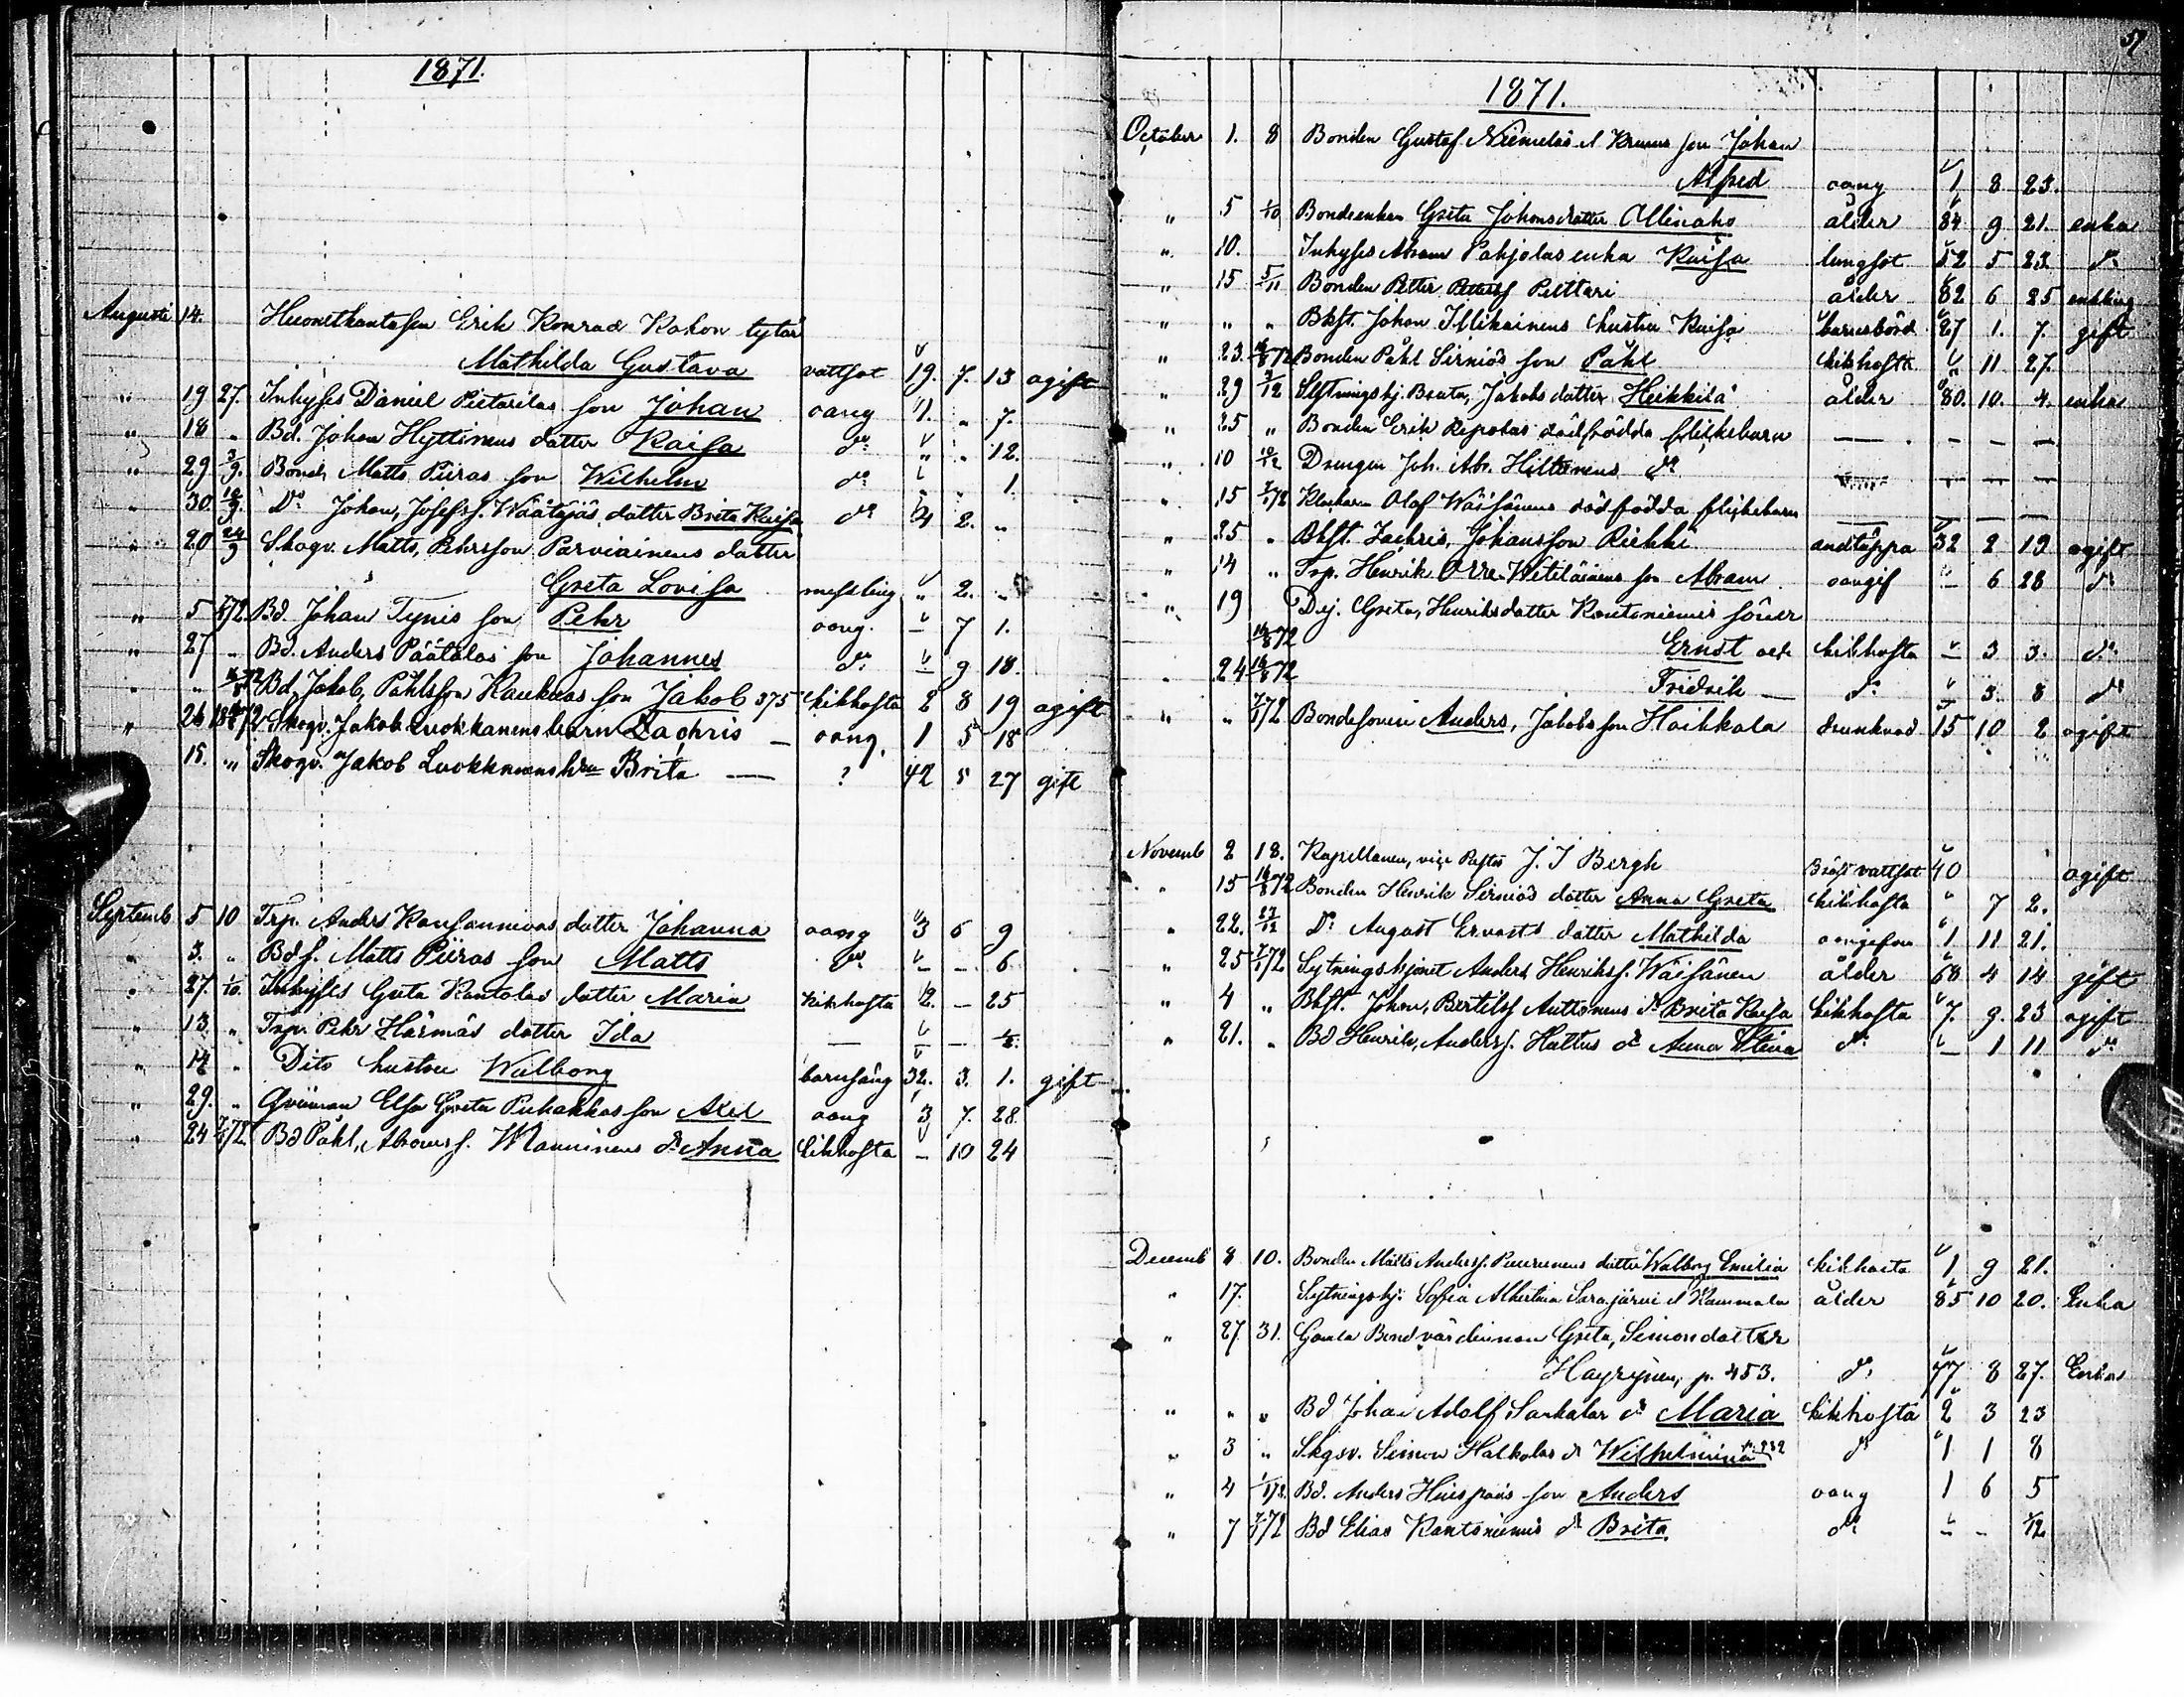 1871.
Augusti 14. Erik Konrad Kokon tytär
Mathilda Gustava vattsot 19. 7. 13 ogift
" 19 27. Inhyses Daniel Pietarilas son Johan oang " 1. " 7.
" 18 " Bd. Johan Hyttinens dotter Kaisa do " " 12.
" 29 3/9. Bond. Matts Piiras son Wilhelm do 1.
" 30. 10/9. Do Johan, Josefs. Wäätäjäs dotter Brita Kaisa do 4 2. "
" 20 24/9 Skogv. Matts, Pehrsson Parviainens dotter
Greta Lovisa messling " 2. "
" 5 Bd. Johan Tynis son Pehr oang. – 7 1.
" 27 " Bd. Anders Päätalos son Johannes do – 9 18.
" " Bd. Jakob, Påhlsson Kaukuas son Jakob 375 kikhosta 2 8 19 ogift
" 24 Skogv. Jakob Luokkanens barn Zachris – oang, 1 5 18
15. " Skogv. Jakob Luokkanens hru Brita — ? 42 5 27 gift
Septemb. 5 10 Trp. Anders Kansannivas dotter Johanna oang 3 6 9
" 3. " Bdf. Matts Piiras son Matts do – – 6
" 27. 1/10. Inhyses Greta Kantolas dotter Maria kikhosta 2. – 25
" 13. " Trp. Pehr Härmäs dotter Ida — – –
" 14 " Dito hustru Walborg barnsäng 32. 3. 1. gift
" 29. " Qvinnan Elsa Greta Puhakkas son Axel oang 3 7. 28
" 24 7/1 72 Bd Påhl, Abrams. Manninens dr Anna kikhosta – 10 24
57
1871.
October 1. 8 Bonden Gustaf Niemeläs el Kruus son Johan
Alfred oang 1 8 23.
" 5 1/10 Bondeenkan Greta Johansdotter Ollinaho ålder 84 9 21. enka
" 10. Inhyses Abram Pohjolas enka Kaisa lungsot 52 5 23 do
" 15 5/11 Bonden Petter Piettari ålder 82 6 25 enkling
" " " Bkst. Johan Illikainens hustru Kaisa barnsbörd 27 1. 7. gift
" 23. 16/8 72 Bonden Påhl Sirniös son Påhl kikhosta " 11 27.
" 29 3/12 Sytningshj. Beata, Jakobsdotter Heikkilä ålder 80. 10. 4. enka
" 25 " Bonden Erik Repolas dödfödda flickebarn — – – –
" 10 10/12 Drengen Joh. Abr. Hiltunens do – – –
" 15 7/1 72 Klockaren Olof Wäisänens dödfödda flickebarn — – –
" 25 " Bkst. Zachris, Johansson Riekki andtäppa 32 2 19 ogift
" 14 " Trp. Henrik Orre-Witiläinens son Abram oangif – 6 28 do
" 19 Dej. Greta, Henriksdotter Kantoniemis söner
16/8 72 Ernst och kikhosta – 3 3. do
" 24 16/8 72 Fridrik — do – 3. 8 do
" " 7/1 72 Bondesonen Anders, Jakobsson Haikkala drunknad 15 10 2 ogift
Novemb 2 18. Kapellanen, vice Pastor J. I Bergh Bröst vattsot 40 ogift
" 15 16/8 72 Bonden Henrik Sirniös dotter Anna Greta kikhosta " 7 2.
" 22. 27/12 Do August Ervasts dotter Mathilda oangifven 1 11 21.
" 25 7/1 72 Sytningshjonet Anders Henrikss. Wäisänen ålder 68 4 14 gift
" 4 " Bkst. Johan, Bertilss Auttonens dr Brita Kaisa kikhosta 7. 9. 23 ogift
" 21. " Bd Henrik, Anderss. Hattus dr Anna Stina do – 1 11 do
Decemb 8 10. Bonden Matts Anderss. Puurunens dotter Walborg Emilia kikhosta 1 9 21.
" 17. Sytningshj. Sofia Albertina Sarajärvi el Kammala ålder 85 10 20. Enka
" 27 31. Gamla Bondvärdinnan Greta, Simonsdotter
Häyrynen, p. 453. do 77 8 27. Enka
" " " Bd Johan Adolf Sarkalas dr Maria kikhosta 2 3 23
" 3 " Skgsv. Simon Halkolas dr Wilhelmina do 1 1 8
" 4 1/1 72. Bd. Anders Huispääs son Anders oang 1 6 5
" 7 7/1 72 Bd Elias Kantoniemis dr Brita do – – 1/12